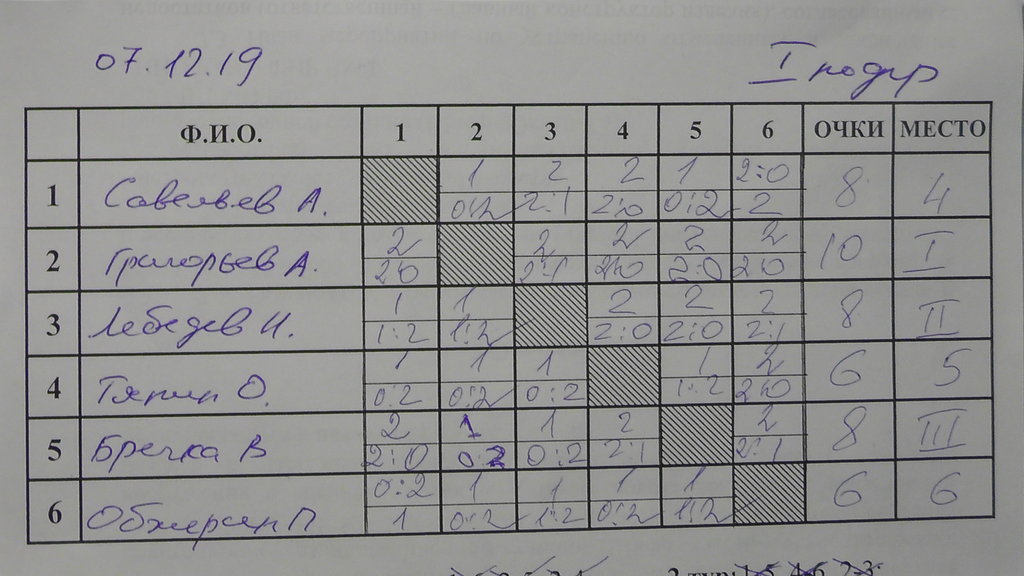 07.12.19
I подгр
Ф.И.О. 1 2 3 4 5 6 ОЧКИ МЕСТО
1 Савельев А. 1 0:2 2 2:1 2 2:0 1 0:2 2:0 2 8 4
2 Григорьев А. 2 2:0 2 2:1 2 2:0 2 2:0 2 2:0 10 I
3 Лебедев И. 1 1:2 1 1:2 2 2:0 2 2:0 2 2:1 8 II
4 Тяпин О. 1 0:2 1 0:2 1 0:2 1 1:2 2 2:0 6 5
5 Бречка В 2 2:0 1 0:2 1 0:2 2 2:1 2 2:1 8 III
6 0:2 1 1 0:2 1 1:2 1 0:2 1 1:2 6 6
2 тур: 1-5, 4-6, 2-3